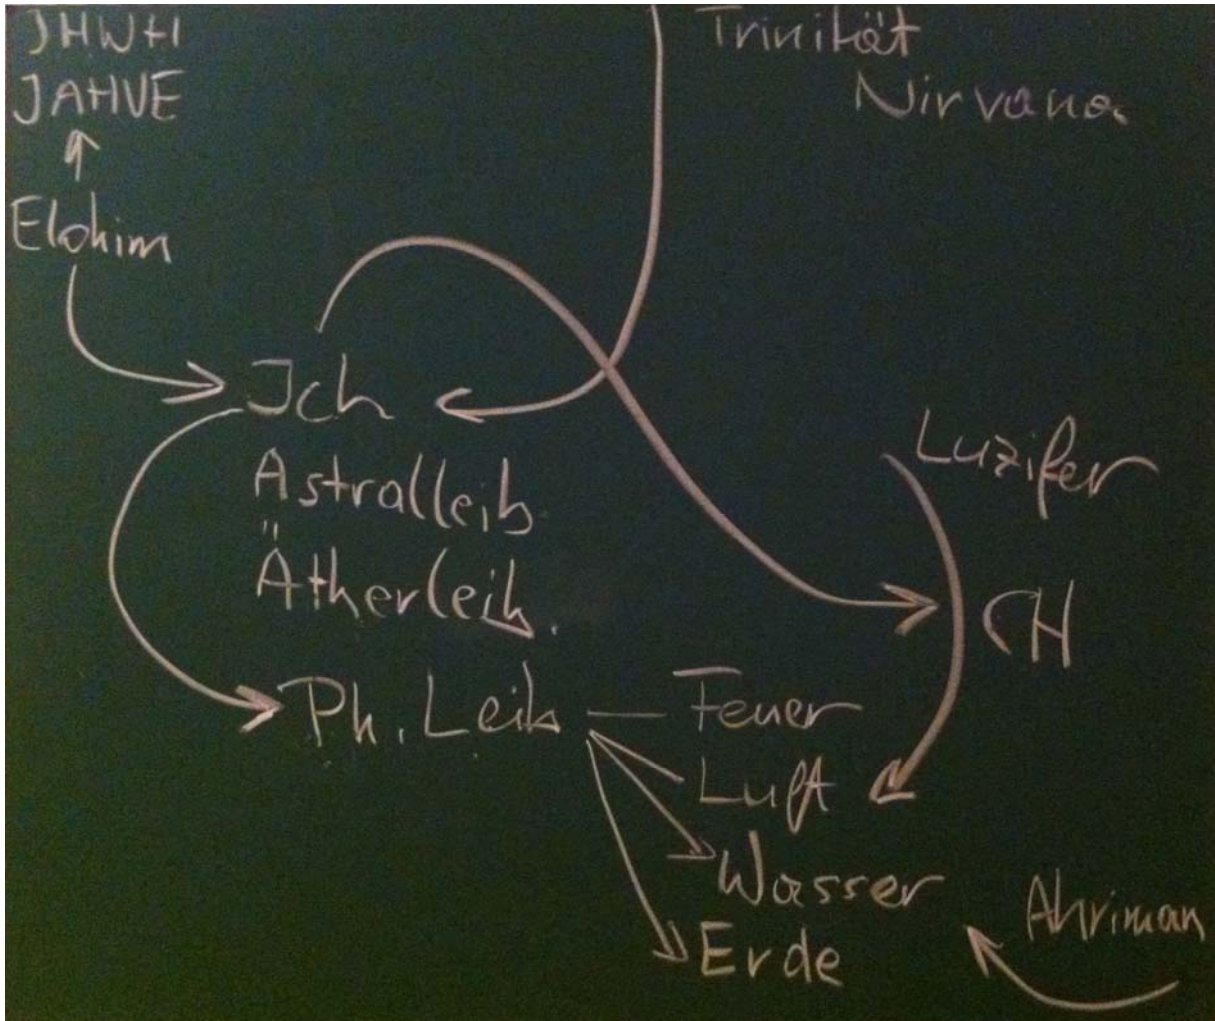 JHWH
JAHVE
Elohim
Trinität
Nirvana
Ich
Astralleib
Ätherleib
Ph. Leib
Feuer
Luft
Wasser
Erde
Luzifer
CH
Ahriman